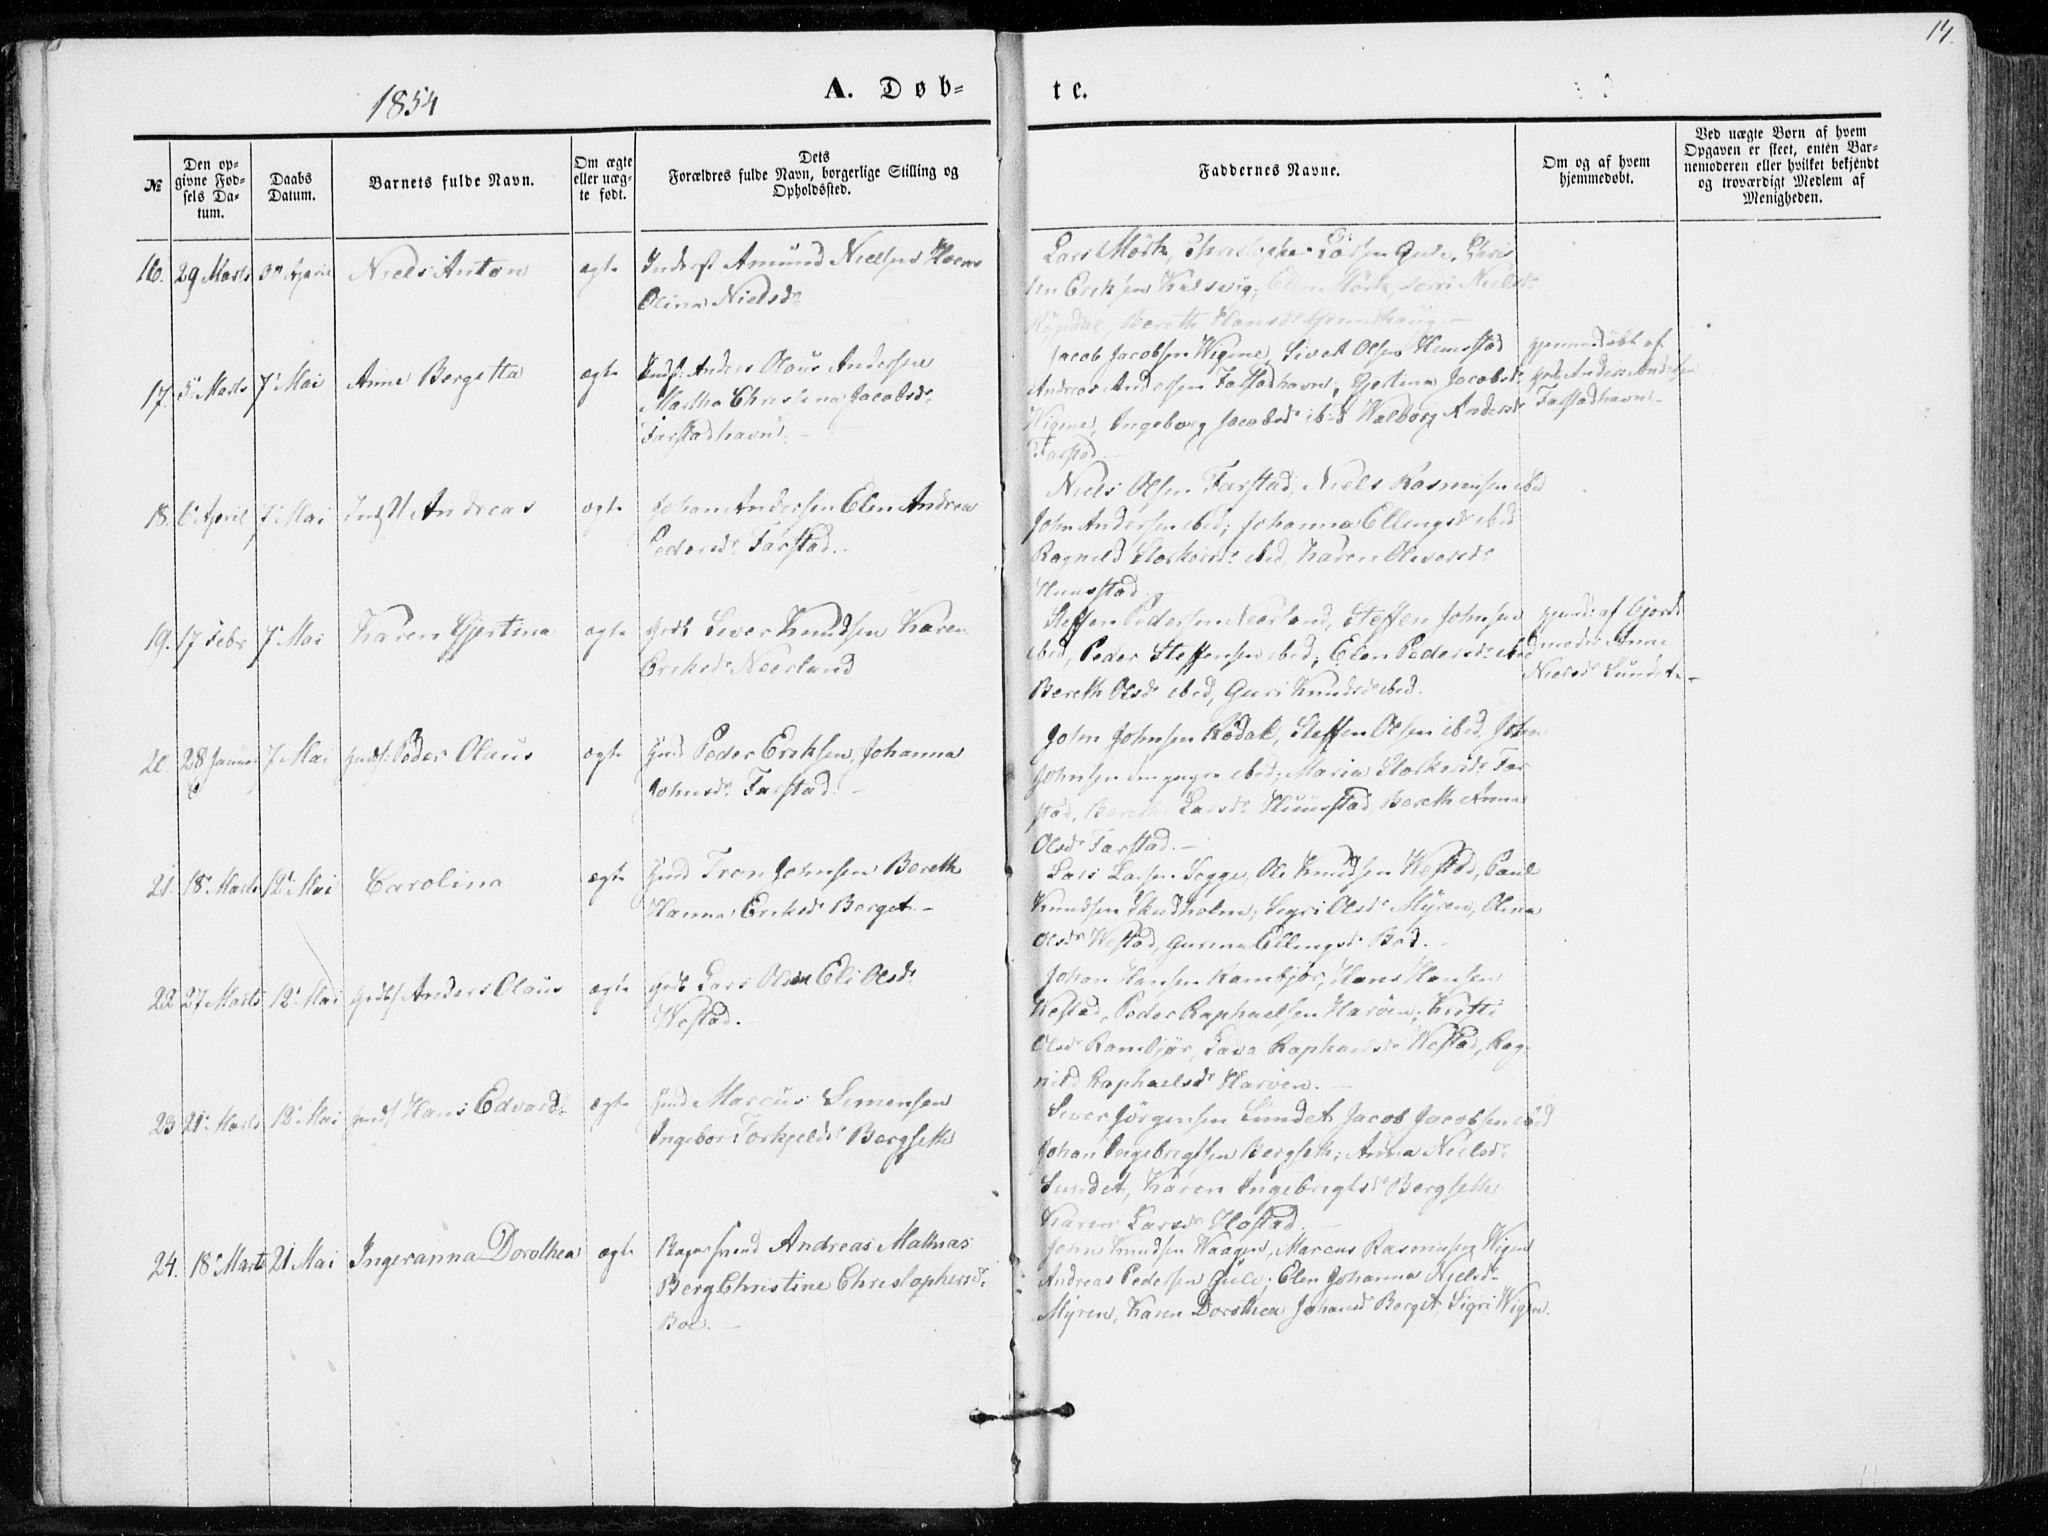 14.
1854
A. Døb-
te.
№
Den op-
givne Fød-
sels Da-
tum.
Daabs
Datum.
Barnets fulde Navn.
Om ægte
eller uæg-
te født.
Dets
Forældres fulde Navn, borgerlige Stilling og
Opholdssted.
Faddernes Navne.
Om og af hvem
hjemmedøbt.
Ved uægte Børn af hvem
Opgaven er skeet, enten Bar-
nemoderen eller hvilket bekjendt
og troværdigt Medlem af
Menigheden.
16. 29 Marts Niels Anton ægte Amund Nielsen
Olina Nielsd.
Lars Mörk, Christopher Larsen Gule,
Eriksen Elen Mörk, Nielsd.
Bereth Hansd.
17. 5 Marts 7 Mai Anne Bergetta ægte Anders Olaus Andersen
Martha Christina Jacobsd.
Farstadhavn.
Jacob Jacobsen Wigene, Sivert Olsen Hunstad
Andreas Andersen Farstadhavn, Gjertina Jacobsd.
Wigene, Ingeborg Jacobsd. ibid Walborg Andersd.
Farstad.
hjemmedöbt af
Anders Andersen
Farstadhavn.
18. 6 April 7 Mai Andreas ægte Johan Andersen Elen Andrea
Pedersd. Farstad.
Niels Olsen Farstad, Niels Rasmusen ibid
John Andersen ibid; Johanna Ellingsd. ibid
Ragnild ibid, Karen Oliversd.
Hunstad.
19. 17 Febr 7 Mai Karen Gjertina ægte Siver Knudsen Karen
Eriksd. Neerland
Steffen Pedersen Neerland, Steffen Johnsen
ibid, Peder Steffensen ibid; Elen Pedersd. ibid
Bereth Olsd. ibid, Guri Knudsd. ibid.
af Gjorde
moder Anne
Nielsd. Sundet.
20. 28 Januar 7 Mai Peder Olaus ægte Peder Eriksen, Johanna
Johnsd. Farstad.
John Johnsen Rödal, Steffen Olsen ibid, John
Johnsen den yngre ibid; Maria Far
stad, Larsd. Hunstad, Bereth Anna
Olsd. Farstad.
21. 18 Marts 12 Mai Carolina ægte Tron Johnsen Bereth
Hanna Eriksd. Berget.
Lars Larsen Sogge, Ole Knudsen Westad, Paul
Knudsen Skudholm; Segri Olsd. Myren, Olina
Olsd. Westad, Ellingsd. Bod.
22. 27 Marts 12 Mai Anders Olaus ægte Lars Olsen Eli Olsd.
Westad.
Johan Hansen Rambjör, Hans Hansen
Westad, Peder Raphaelsen Haröen;
Olsd. Rambjör, Raphaelsd. Westad, Rag-
nild Raphaelsd. Haröen.
23 21 Marts 12 Mai Hans Edvard ægte Marcus Simensen
Ingebor Torkjelds. Bergseth
Siver Jörgensen Sundet Jacob Jacobsen ibid
Johan Ingebrigtsen Bergseth; Anna Nielsd.
Sundet, Karen Ingebrigtsd. Bergseth
Karen Larsd. Hostad.
24. 18 Marts 21 Mai Ingeranna Dorothea ægte Andreas Mathias
Berg Christine Christophersd.
Boe.
John Knudsen Waagen, Marcus Rasmusen Wigen
Andreas Pedersen Gule; Elen Johanna Nielsd.
Myren, Karen Dorothea Johansd. Berget, Sigri Wigen.